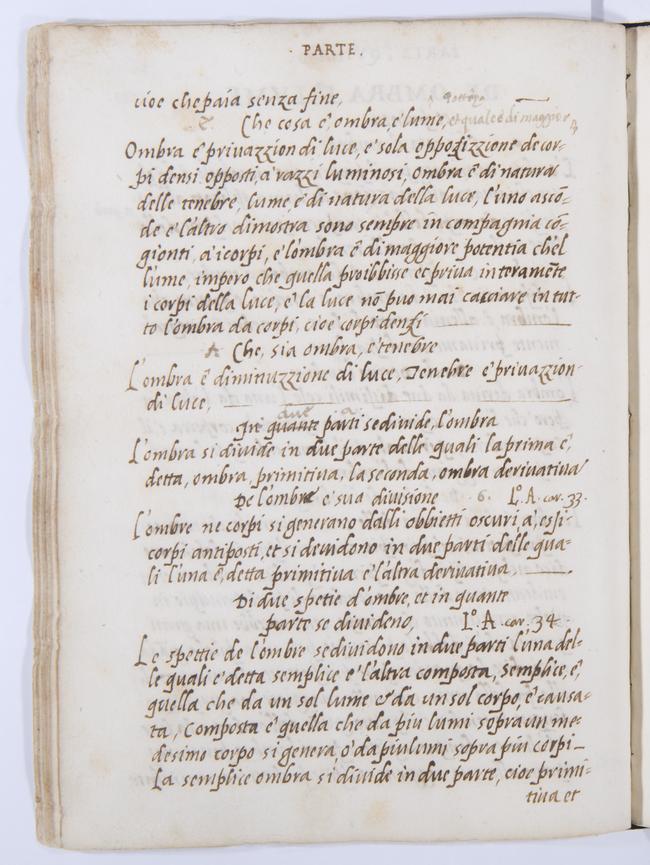 · PARTE.
cioe che paia senza fine,
Che cosa e', ombra, e lume, et quale è di maggior
Ombra e' privazzion di luce, e' sola oppozizzione de cor-
pi densi opposti, a' razzi luminosi, ombra e' di natura
delle tenebre, lume, e' di natura della luce, l'uno ascō-
de e l'altro dimostra sono sempre in compagnia cō-
gionti, a' i corpi, e l'ombra e' di maggiore potentia che'l
lume, impero che quella proibbisse et priva interamēte
i corpi della luce, e' la luce nō puo mai cacciare in tut-
to l'ombra da corpi, cioe corpi denzi
Che, sia ombra, e' tenebre
L'ombra e' diminuzzione di luce, Tenebre e' privazzion-
di luce,
due
In quante parti se divide, l'ombra
L'ombra si divide in due parte delle quali la prima e',
detta, ombra, primitiva, la seconda, ombra derivativa
De l'ombre e' sua divisione · 6 · Lº. A. car. 33.
L'ombre ne corpi si generano dalli obbietti oscuri, a', essi-
corpi antiposti, et si devidono in due parti delle qua-
li l'una e', detta primitiva e l'altra derivativa
Di due spetie d'ombre, et in quante
parte se divideno, Lº. A. car. 34.
Le spettie de l'ombre se dividono in due parti l'una del-
le quali e' detta semplice e' l'altra composta, semplice, e',
quella che da un sol lume & da un sol corpo, e' causa-
ta, Composta e' quella che da piu lumi sopra un me-
desimo corpo si genera o' da piu lumi sopra piu corpi_
La semplice ombra si divide in due parte, cioe primi-
tiva et